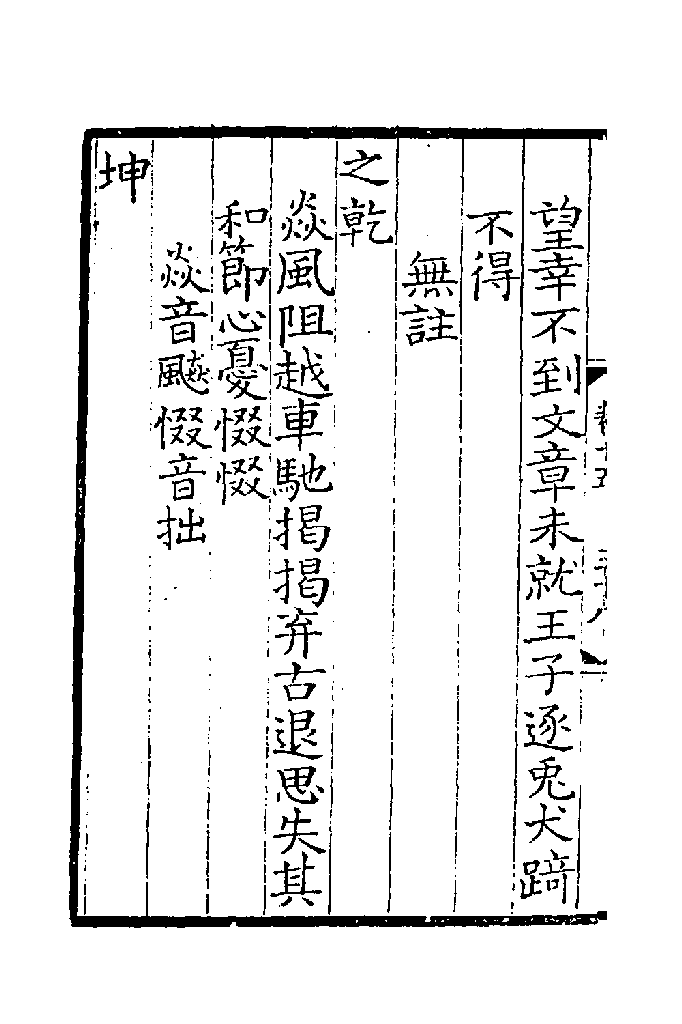 望幸不到文章未就王子逐兎犬踦
不得
無註
之乾
焱風阻越車馳揭揭弃古退思失其
和節心憂惙惙
焱音飈惙音拙
坤